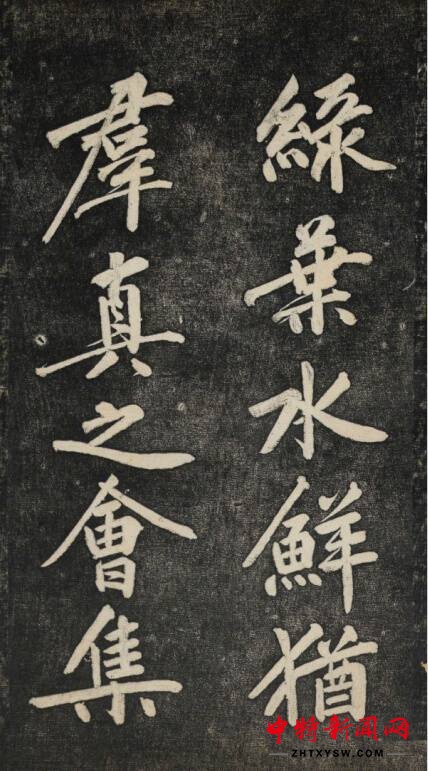 綠葉水鮮猶
羣真之會集
中特新闻网
ZHTXYSW.COM